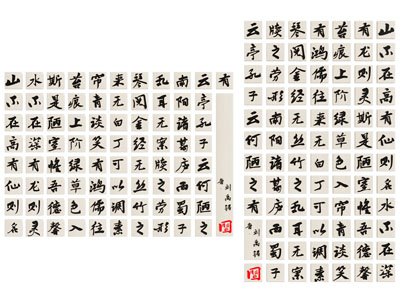 山不在高有仙则名
水不在深有龙则灵
斯是陋室惟吾德馨
苔痕上阶绿草色入
帘青谈笑有鸿儒往
来无白丁可以调素
琴阅金经无丝竹之
乱耳无案牍之劳形
南阳诸葛庐西蜀子
云亭孔子云何陋之
有
唐 刘禹锡
山不在高有仙则名水不在深
有龙则灵斯是陋室惟吾德馨
苔痕上阶绿草色入帘青谈笑
有鸿儒往来无白丁可以调素
琴阅金经无丝竹之乱耳无案
牍之劳形南阳诸葛庐西蜀子
云亭孔子云何陋之有
唐 刘禹锡